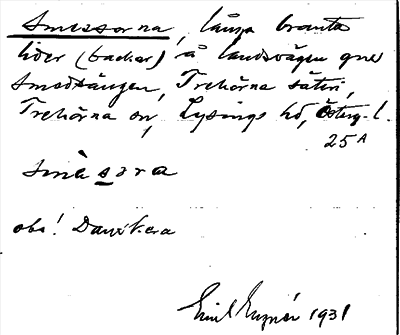 Smessorna, långa branta
lider (backar) å landsvägen
Smedsängen, Trehörna säteri,
Trehörna sn, Lysings hd, Östergl.
25 A
smèsora
obs!
Emil 1931